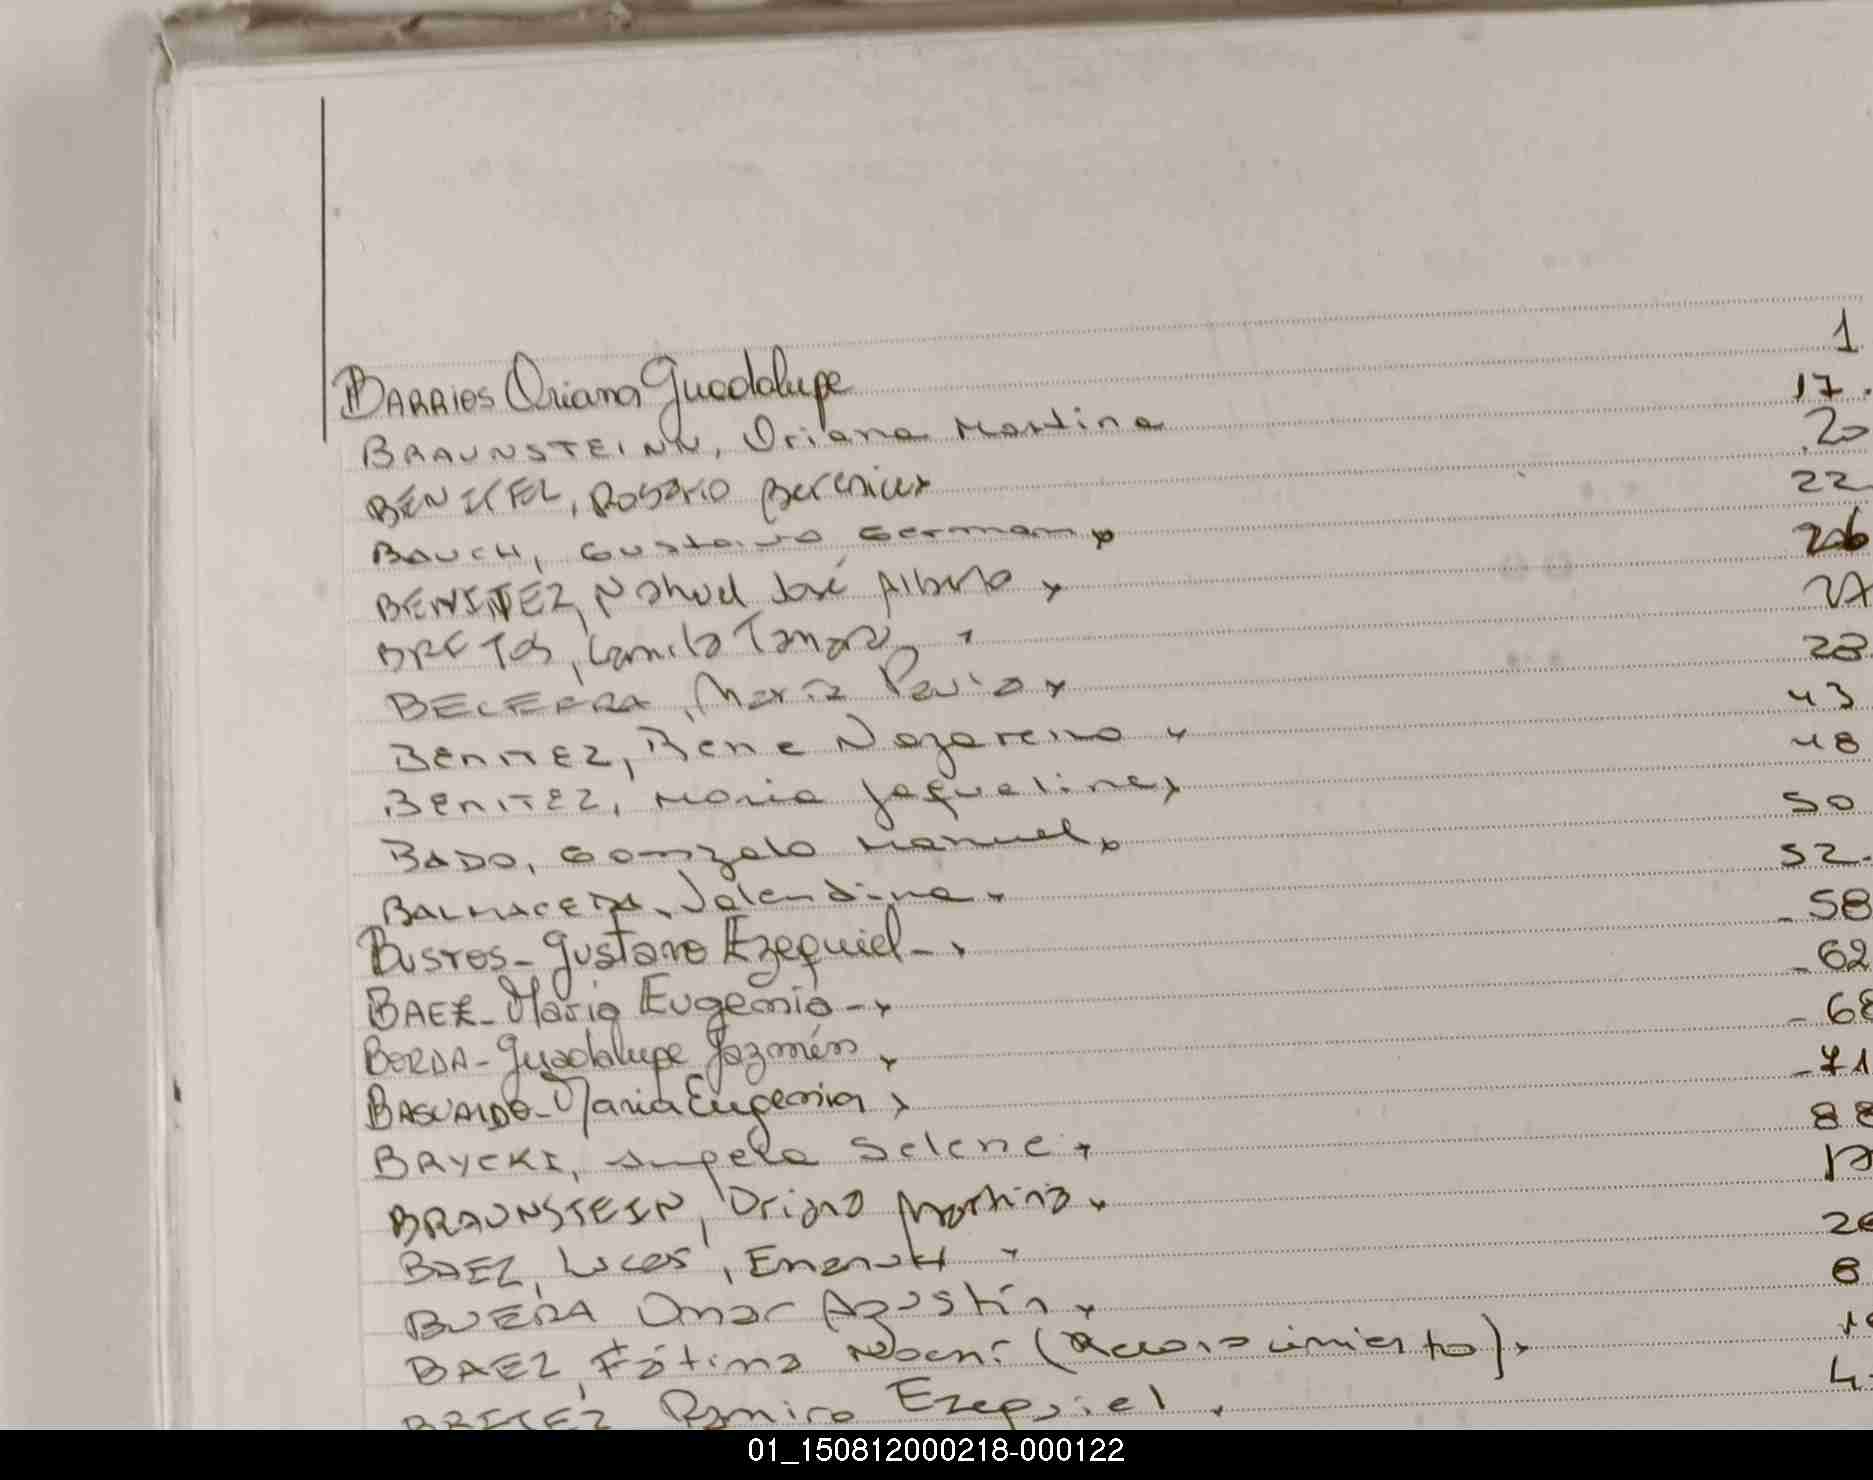 BARRIOS Oriana Guadalupe 1
BRAUNSTEINN, Oriana Martina 17.
BENITEZ, Rosario Berenice 20
BAUCH, Gustavo German 22
BENITEZ, Nahuel José Alberto 26
BRETOS, Camila Tamara 27
BECERRA, María Paula 28
BENITEZ, Rene Nazareno 43
BENITEZ, Maria Jaqueline 48
BADO, Gonzalo Manuel 50
BALMACEDA, Valentina 52.
BUSTOS - Gustavo Ezequiel - - 58
BAEZ - Maria Eugenia - - 62
BORDA - Guadalupe Jazmín - 68
BASUALDO - Maria Eugenia - 71
BRYCKI, Angela Selene 88
BRAUNSTEIN, Oriana Martina 17
BAEZ, Lucas, Emanuel
BUERA Omar Agustín 8
BAEZ, Fátima Noemí (Reconocimiento)
Ramiro Ezequiel
01_150812000218-000122